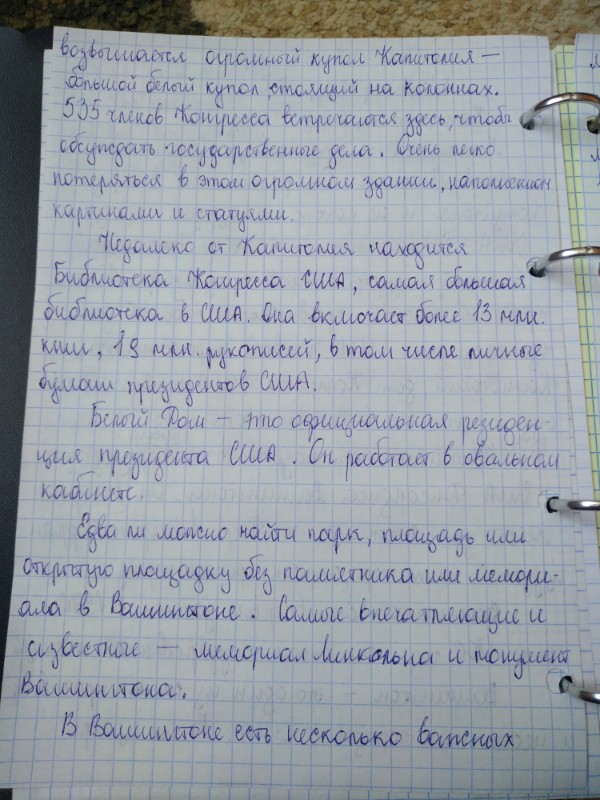 возвышается огромный купол Капитолия —
большой белый купол, стоящий на колоннах.
535 членов Конгресса встречаются здесь, чтобы
обсуждать государственные дела. Очень легко
потеряться в этом огромном здании, наполненном
картинами и статуями.
Недалеко от Капитолия находится
Библиотека Конгресса США, самая большая
библиотека в США. Она включает более 13 млн.
книг, 19 млн. рукописей, в том числе личные
бумаги президентов США.
Белый Дом — это официальная резиден-
ция президента США. Он работает в овальном
кабинете.
Едва ли можно найти парк, площадь или
открытую площадку без памятника или мемори-
ала в Вашингтоне. Самые впечатляющие и
известные — мемориал Линкольна и монумент
Вашингтона.
В Вашингтоне есть несколько важных